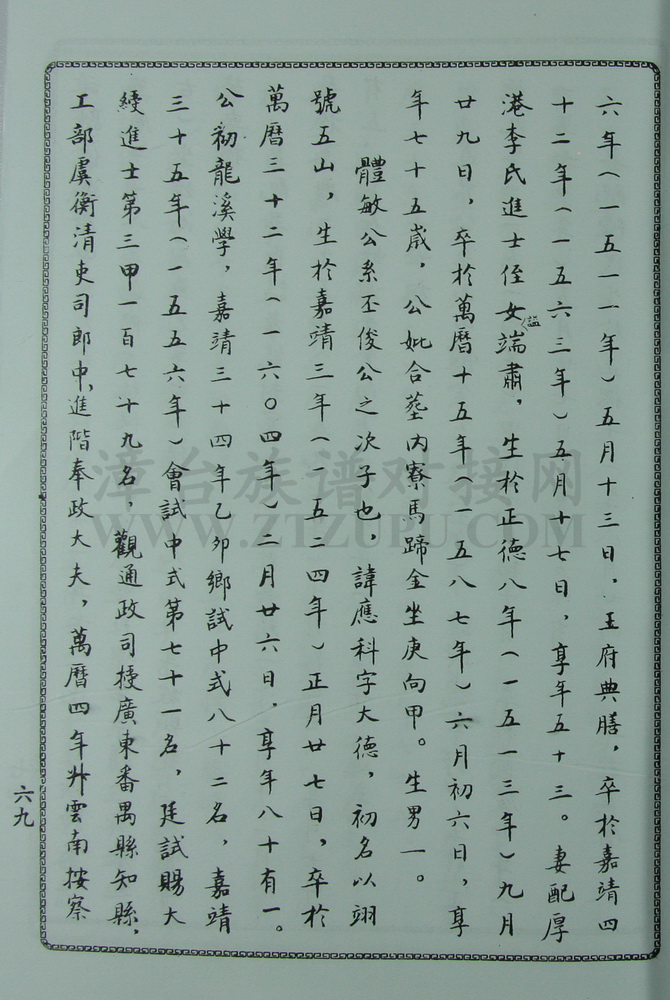 六年(一五一一年)五月十三日，王府典膳，卒於嘉靖四
十二年(一五六三年)五月十七日，享年五十三。妻配厚
港李氏進士侄女謚端肅，生於正德八年(一五一三年)九月
廿九日，卒於萬曆十五年(一五八七年)六月初六日，享
年七十五歲，公妣合塟內寮馬蹄金坐庚向甲。生男一。
體敏公系丕俊公之次子也，諱應科字大德，初名以翊
號五山，生於嘉靖三年(一五二四年)正月廿七日，卒於
萬曆三十二年(一六〇四年)二月廿六日，享年八十有一。
公初龍溪學，嘉靖三十四年乙卯鄉試中式八十二名，嘉靖
三十五年(一五五六年)會試中式第七十一名，廷試賜大
綬進士第三甲一百七十九名，觀通政司授廣東番禺縣知縣，
工部虞衡清吏司郎中，進階奉政大夫，萬曆四年升雲南按察
六九
漳台族谱对接网
WWW.ZTZUPU.COM